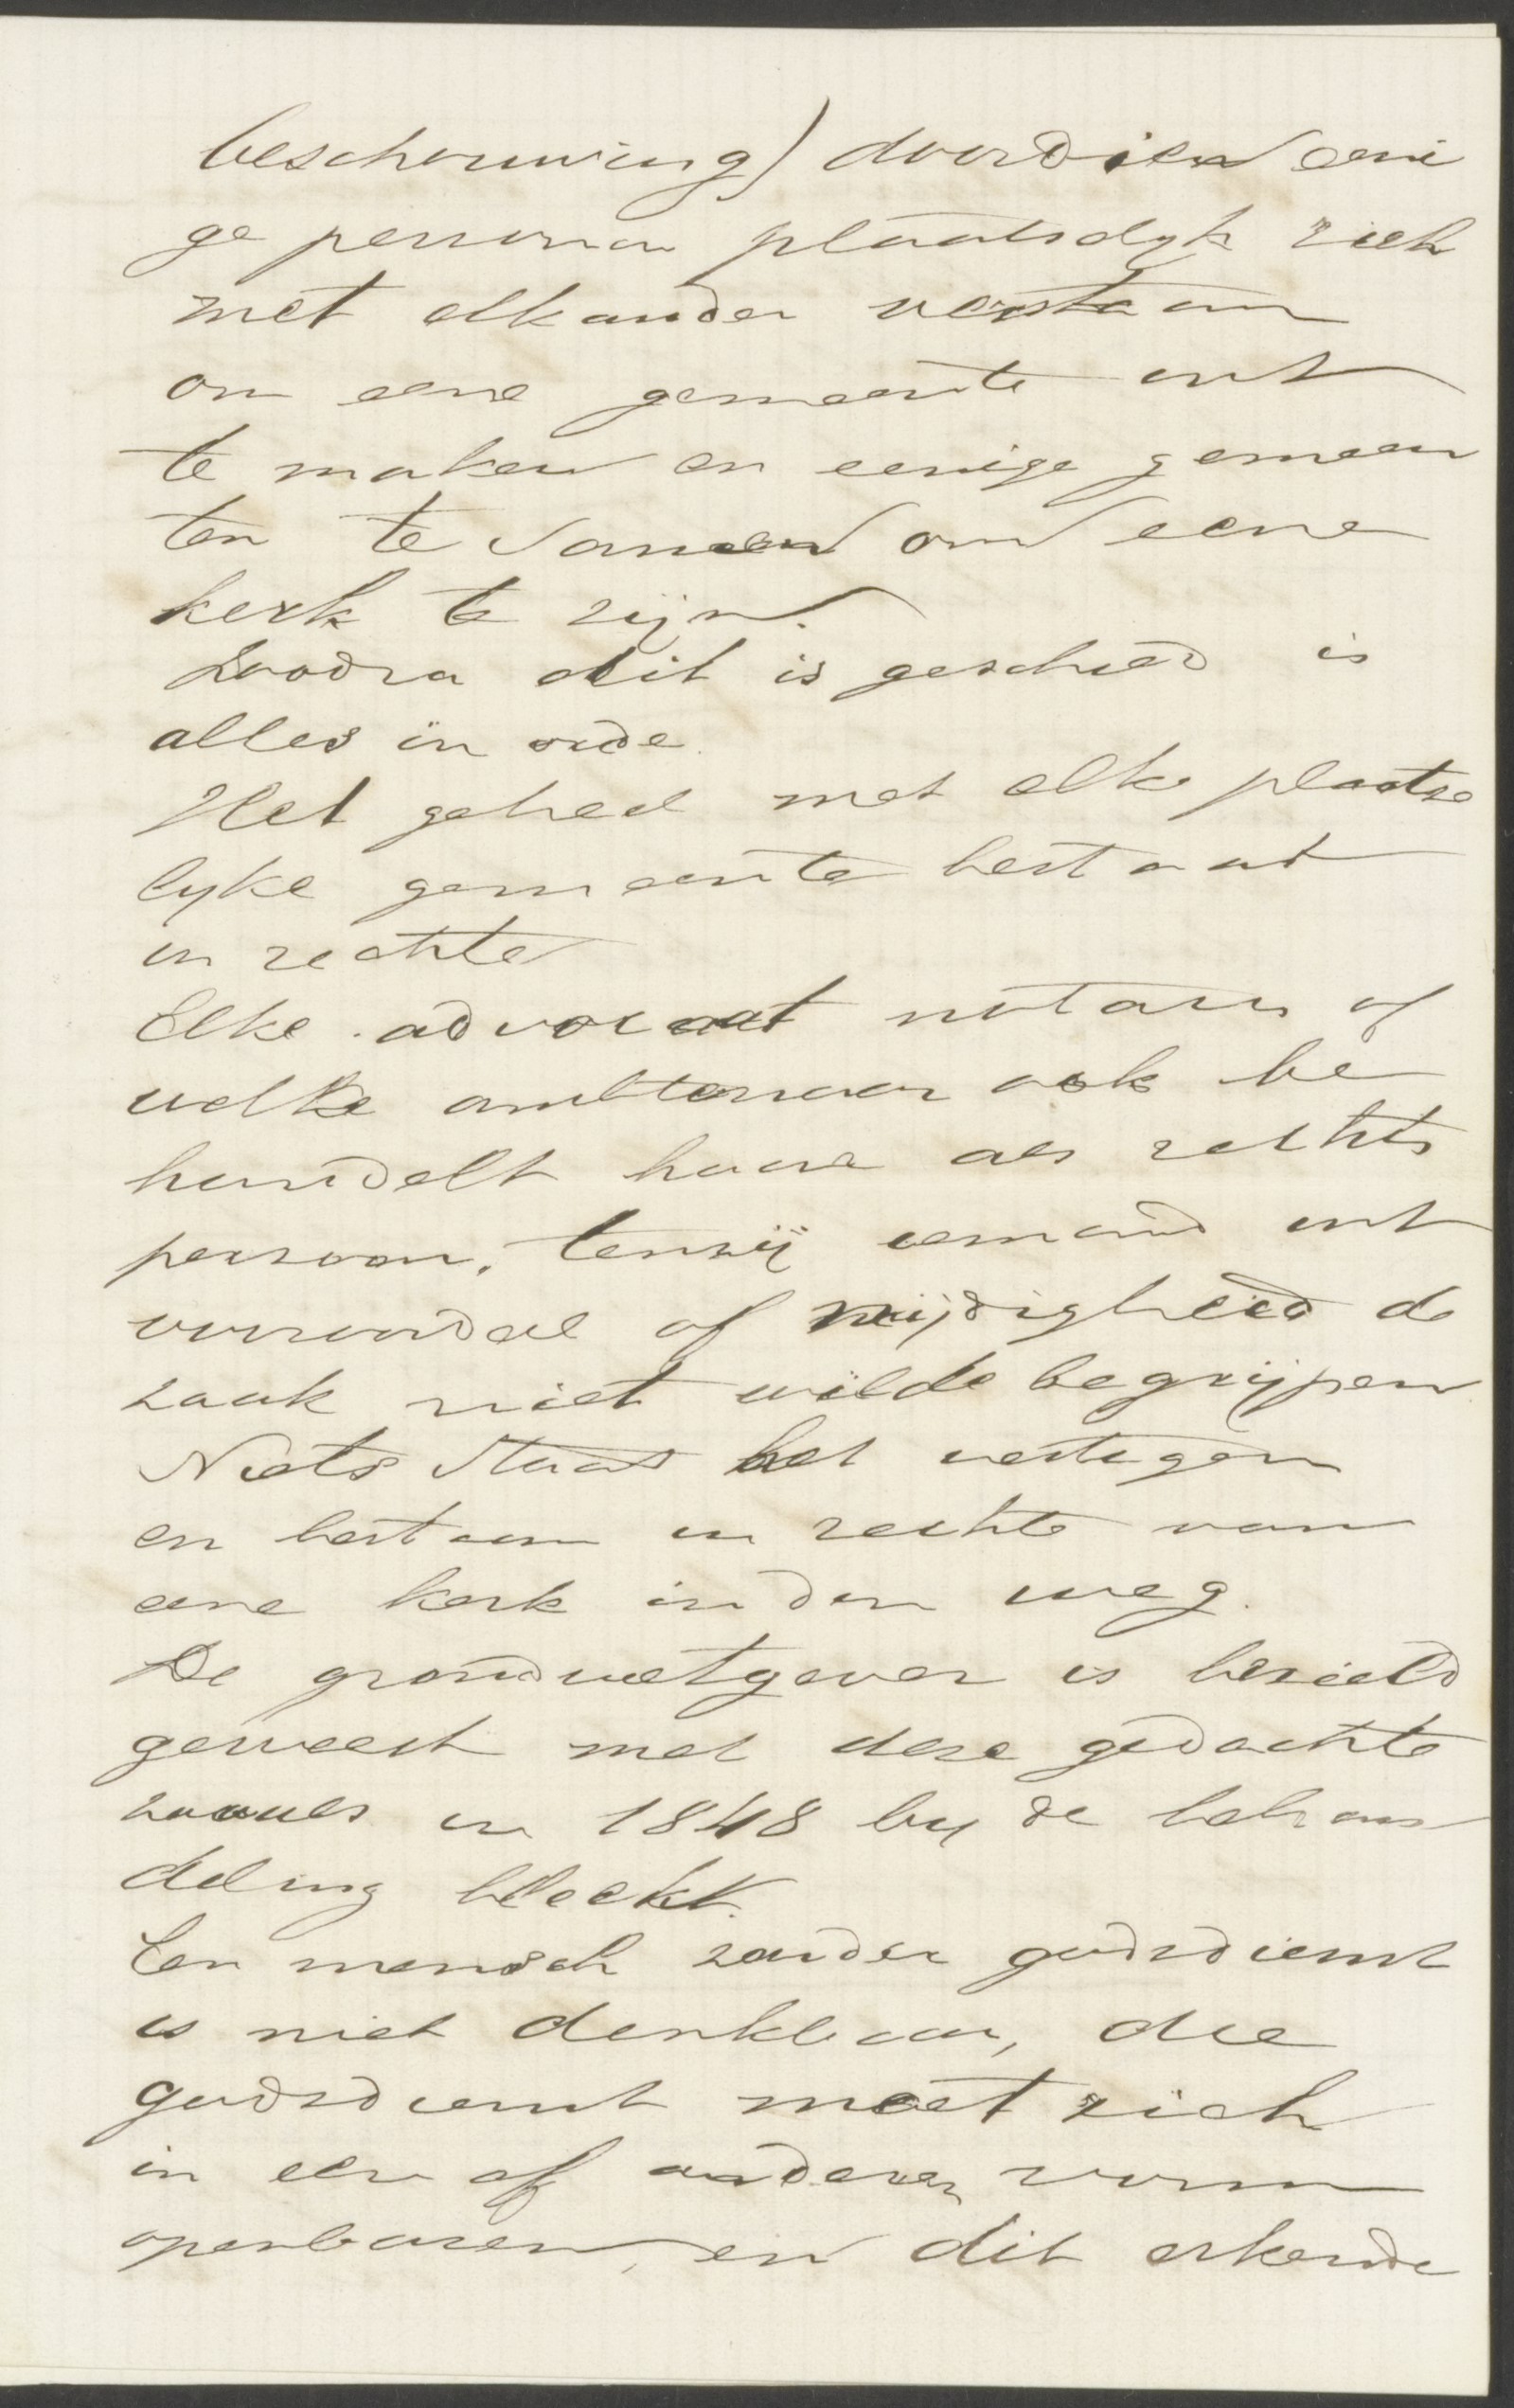 beschouwing) doordien eeni
ge personen plaatselyk zich
met elkander verstaan
om eene gemeente uit
te maken en eenige gemeen
ten te samen om eene
kerk te zijn.
Zoodra dit is geschied is
alles in orde.
Het geheel met elke plaatse
lyke gemeente bestaat
in rechte
Elke advocaat notaris of
welke ambtenaar ook be
handelt haare als rechts
persoon, tenzij iemand uit
vooroordeel of nijdigheid de
zaak niet wilde begrijpen
Niets staat het vestigen
en bestaan in rechte van
eene kerk in den weg.
De grondwetgever is bezield
geweest met deze gedachte
zooals in 1848 by de behan
deling bleekt.
Een mensch zonder godsdienst
is niet denkbaar, die
godsdienst moet zich
in een of anderen vorm
openbaren, en dit erkende